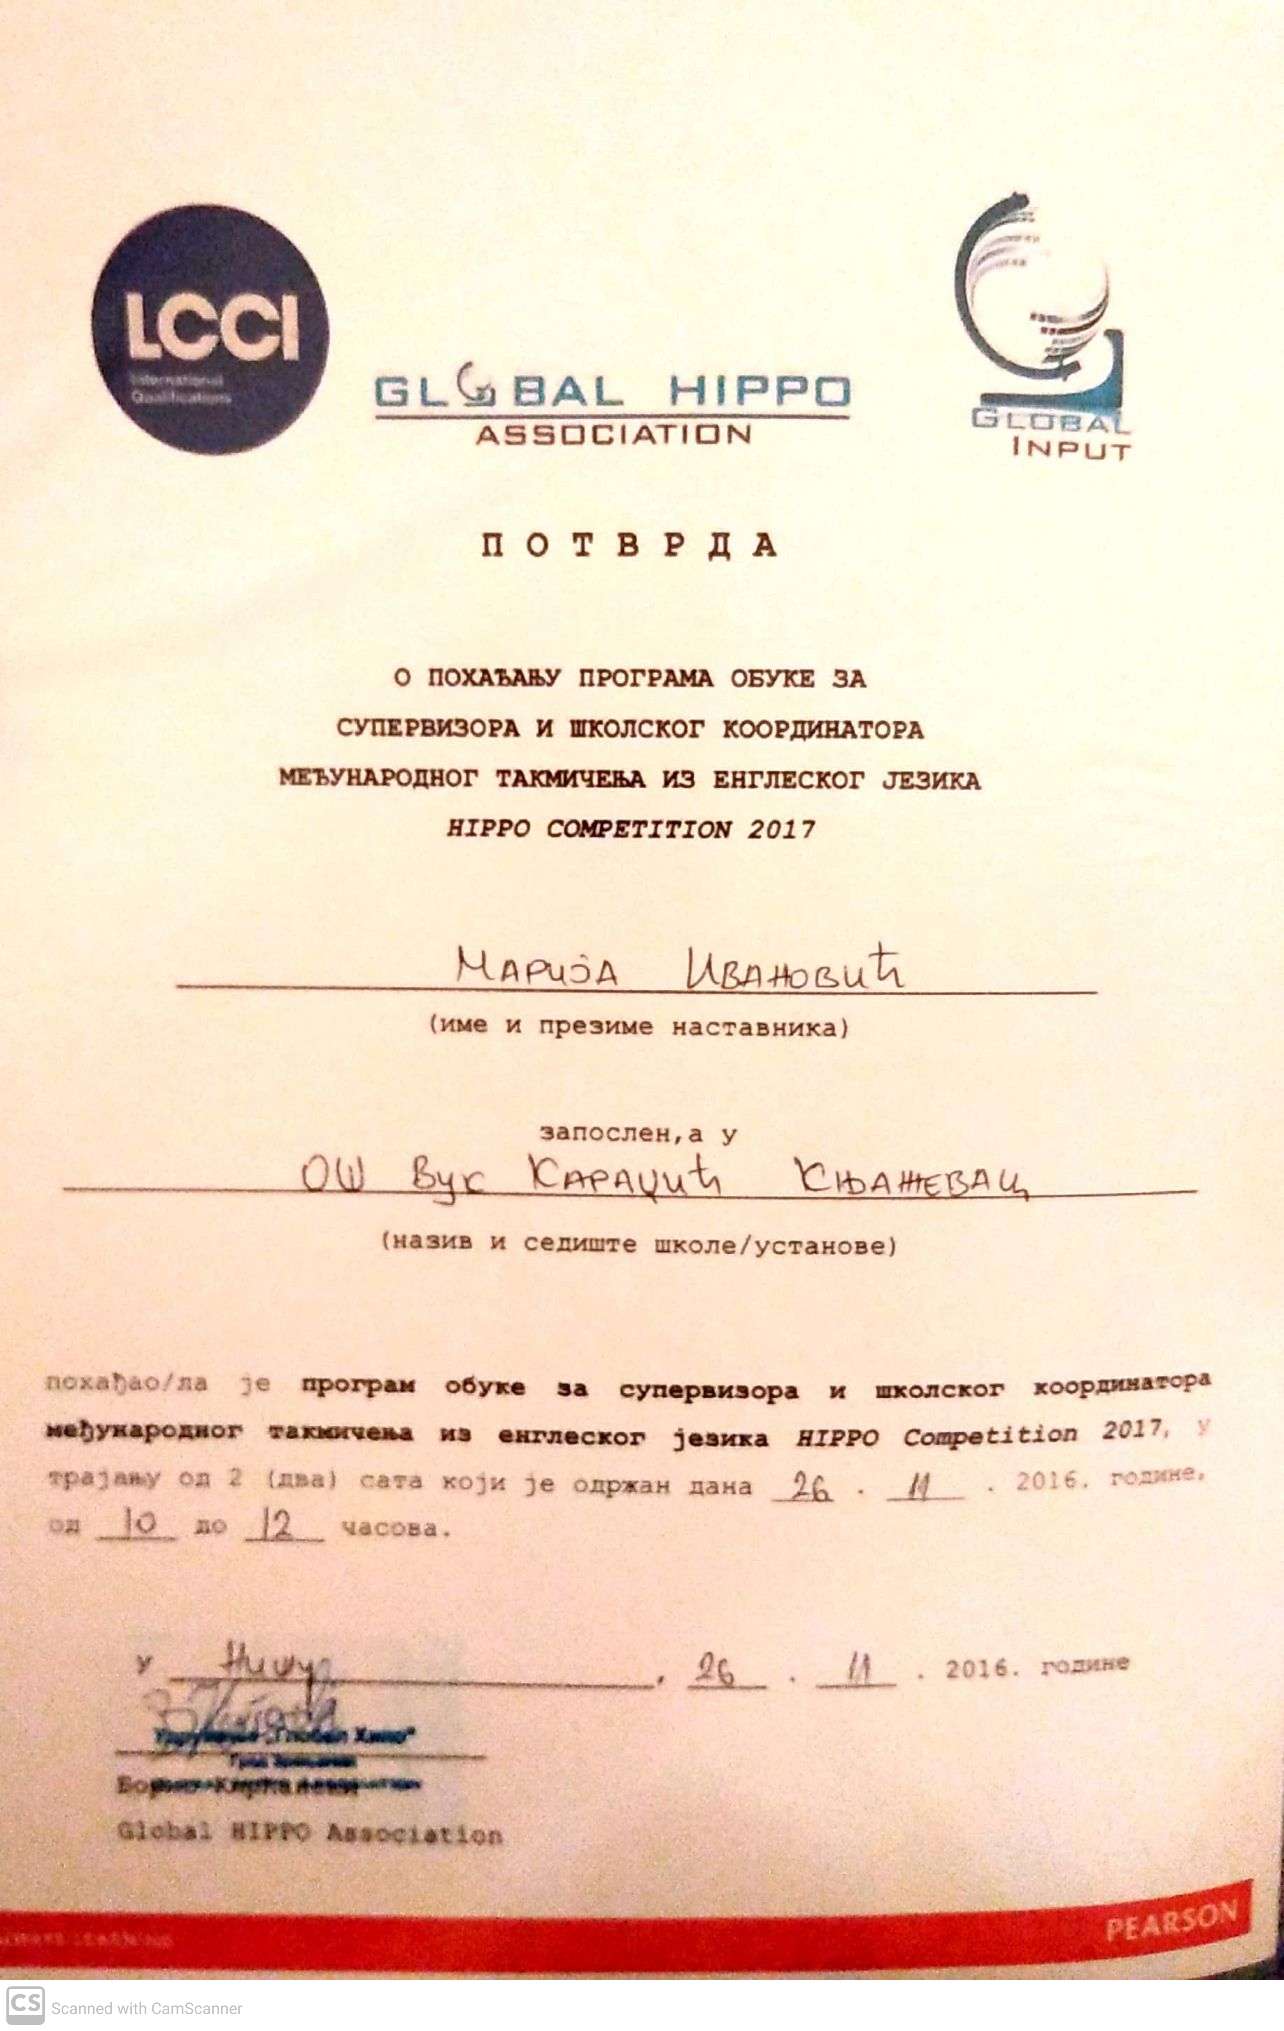 LCCI
International
Qualifications
GLOBAL HIPPO
ASSOCIATION
GLOBAL
INPUT
ПОТВРДА
О ПОХАЂАЊУ ПРОГРАМА ОБУКЕ ЗА
СУПЕРВИЗОРА И ШКОЛСКОГ КООРДИНАТОРА
МЕЂУНАРОДНОГ ТАКМИЧЕЊА ИЗ ЕНГЛЕСКОГ ЈЕЗИКА
HIPPO COMPETITION 2017
Марија Ивановић
(име и презиме наставника)
запослен,а у
ОШ Вук Караџић Књажевац
(назив и седиште школе/установе)
похађао/ла је програм обуке за супервизора и школског координатора
међународног такмичења из енглеског језика HIPPO Competition 2017, у
трајању од 2 (два) сата који је одржан дана 26 . 11 . 2016. године,
од 10 до 12 часова.
у Нишу, 26 . 11 . 2016. године
Global HIPPO Association
ALWAYS LEARNING
PEARSON
CS Scanned with CamScanner